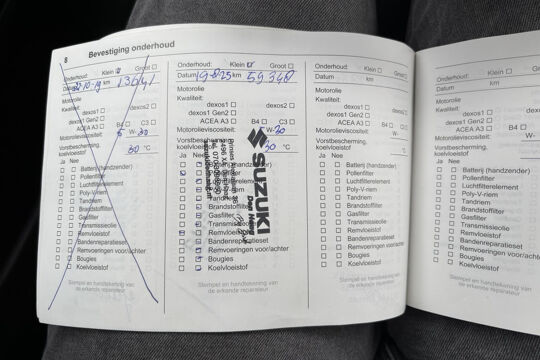 8 Bevestiging onderhoud
Onderhoud: Klein Groot
Datum km 13641
Motorolie
Kwaliteit:
dexos1 dexos2
dexos1 Gen2
ACEA A3 B4 C3
Motorolieviscositeit: 5 W- 30
Vorstbescherming,
koelvloeistof 30 °C
Ja Nee
Batterij (handzender)
Pollenfilter
Luchtfilterelement
Poly-V-riem
Tandriem
Brandstoffilter
Gasfilter
Transmissieolie
Remvloeistof
Bandenreparatieset
Remvoeringen voor/achter
Bougies
Koelvloeistof
Stempel en handtekening van
de erkende reparateur
Onderhoud: Klein Groot
Datum 19-8-25 km 59348
Motorolie
Kwaliteit:
dexos1 dexos2
dexos1 Gen2
ACEA A3 B4 C3
Motorolieviscositeit: W-30
Vorstbescherming,
koelvloeistof 30 °C
Ja Nee
Batterij (handzender)
Pollenfilter
Luchtfilterelement
Poly-V-riem
Tandriem
Brandstoffilter
Gasfilter
Transmissieolie
Remvloeistof
Bandenreparatieset
Remvoeringen voor/achter
Bougies
Koelvloeistof
SUZUKI
Den Haag
Stempel en handtekening van
de erkende reparateur
Onderhoud: Klein Groot
Datum km
Motorolie
Kwaliteit:
dexos1 dexos2
dexos1 Gen2
ACEA A3 B4 C3
Motorolieviscositeit: W-
Vorstbescherming,
koelvloeistof °C
Ja Nee
Batterij (handzender)
Pollenfilter
Luchtfilterelement
Poly-V-riem
Tandriem
Brandstoffilter
Gasfilter
Transmissieolie
Remvloeistof
Bandenreparatieset
Remvoeringen voor/achter
Bougies
Koelvloeistof
Stempel en handtekening van
de erkende reparateur
Onderhoud: Klein
Datum km
Motorolie
Kwaliteit:
dexos1
dexos1 Gen2
ACEA A3 B4
Motorolieviscositeit:
Vorstbescherming,
koelvloeistof
Ja Nee
Batterij (handzender)
Pollenfilter
Luchtfilterelement
Poly-V-riem
Tandriem
Brandstoffilter
Gasfilter
Transmissieolie
Remvloeistof
Bandenreparatieset
Remvoeringen
Bougies
Koelvloeistof
Stempel en
de erkende